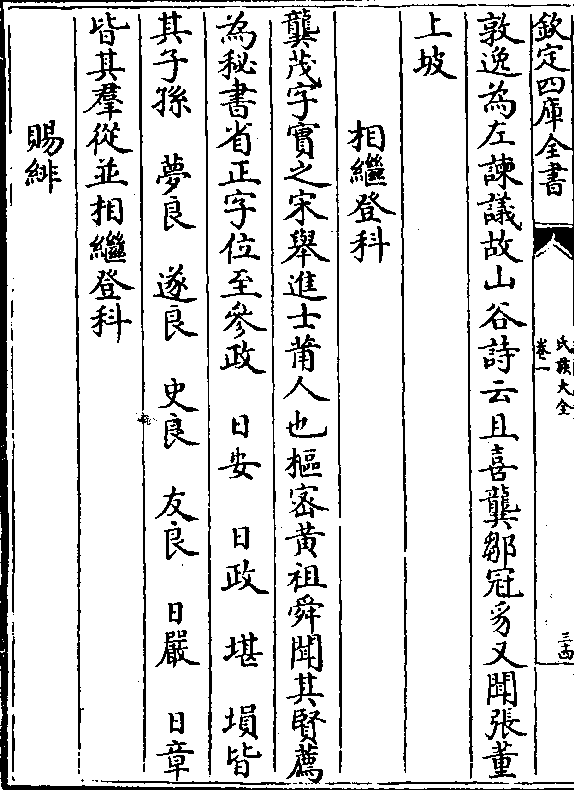 欽定四庫全書
氏族大全
卷一
三四
敦逸為左諫議故山谷詩云且喜龔鄒冠豸又聞張董
上坡
相繼登科
龔茂字實之宋舉進士莆人也樞密黄祖舜聞其賢薦
為秘書省正字位至參政 日安 日政 堪 塤皆
其子孫 夢良 遂良 史良 友良 日嚴 日章
皆其羣從並相繼登科
賜緋